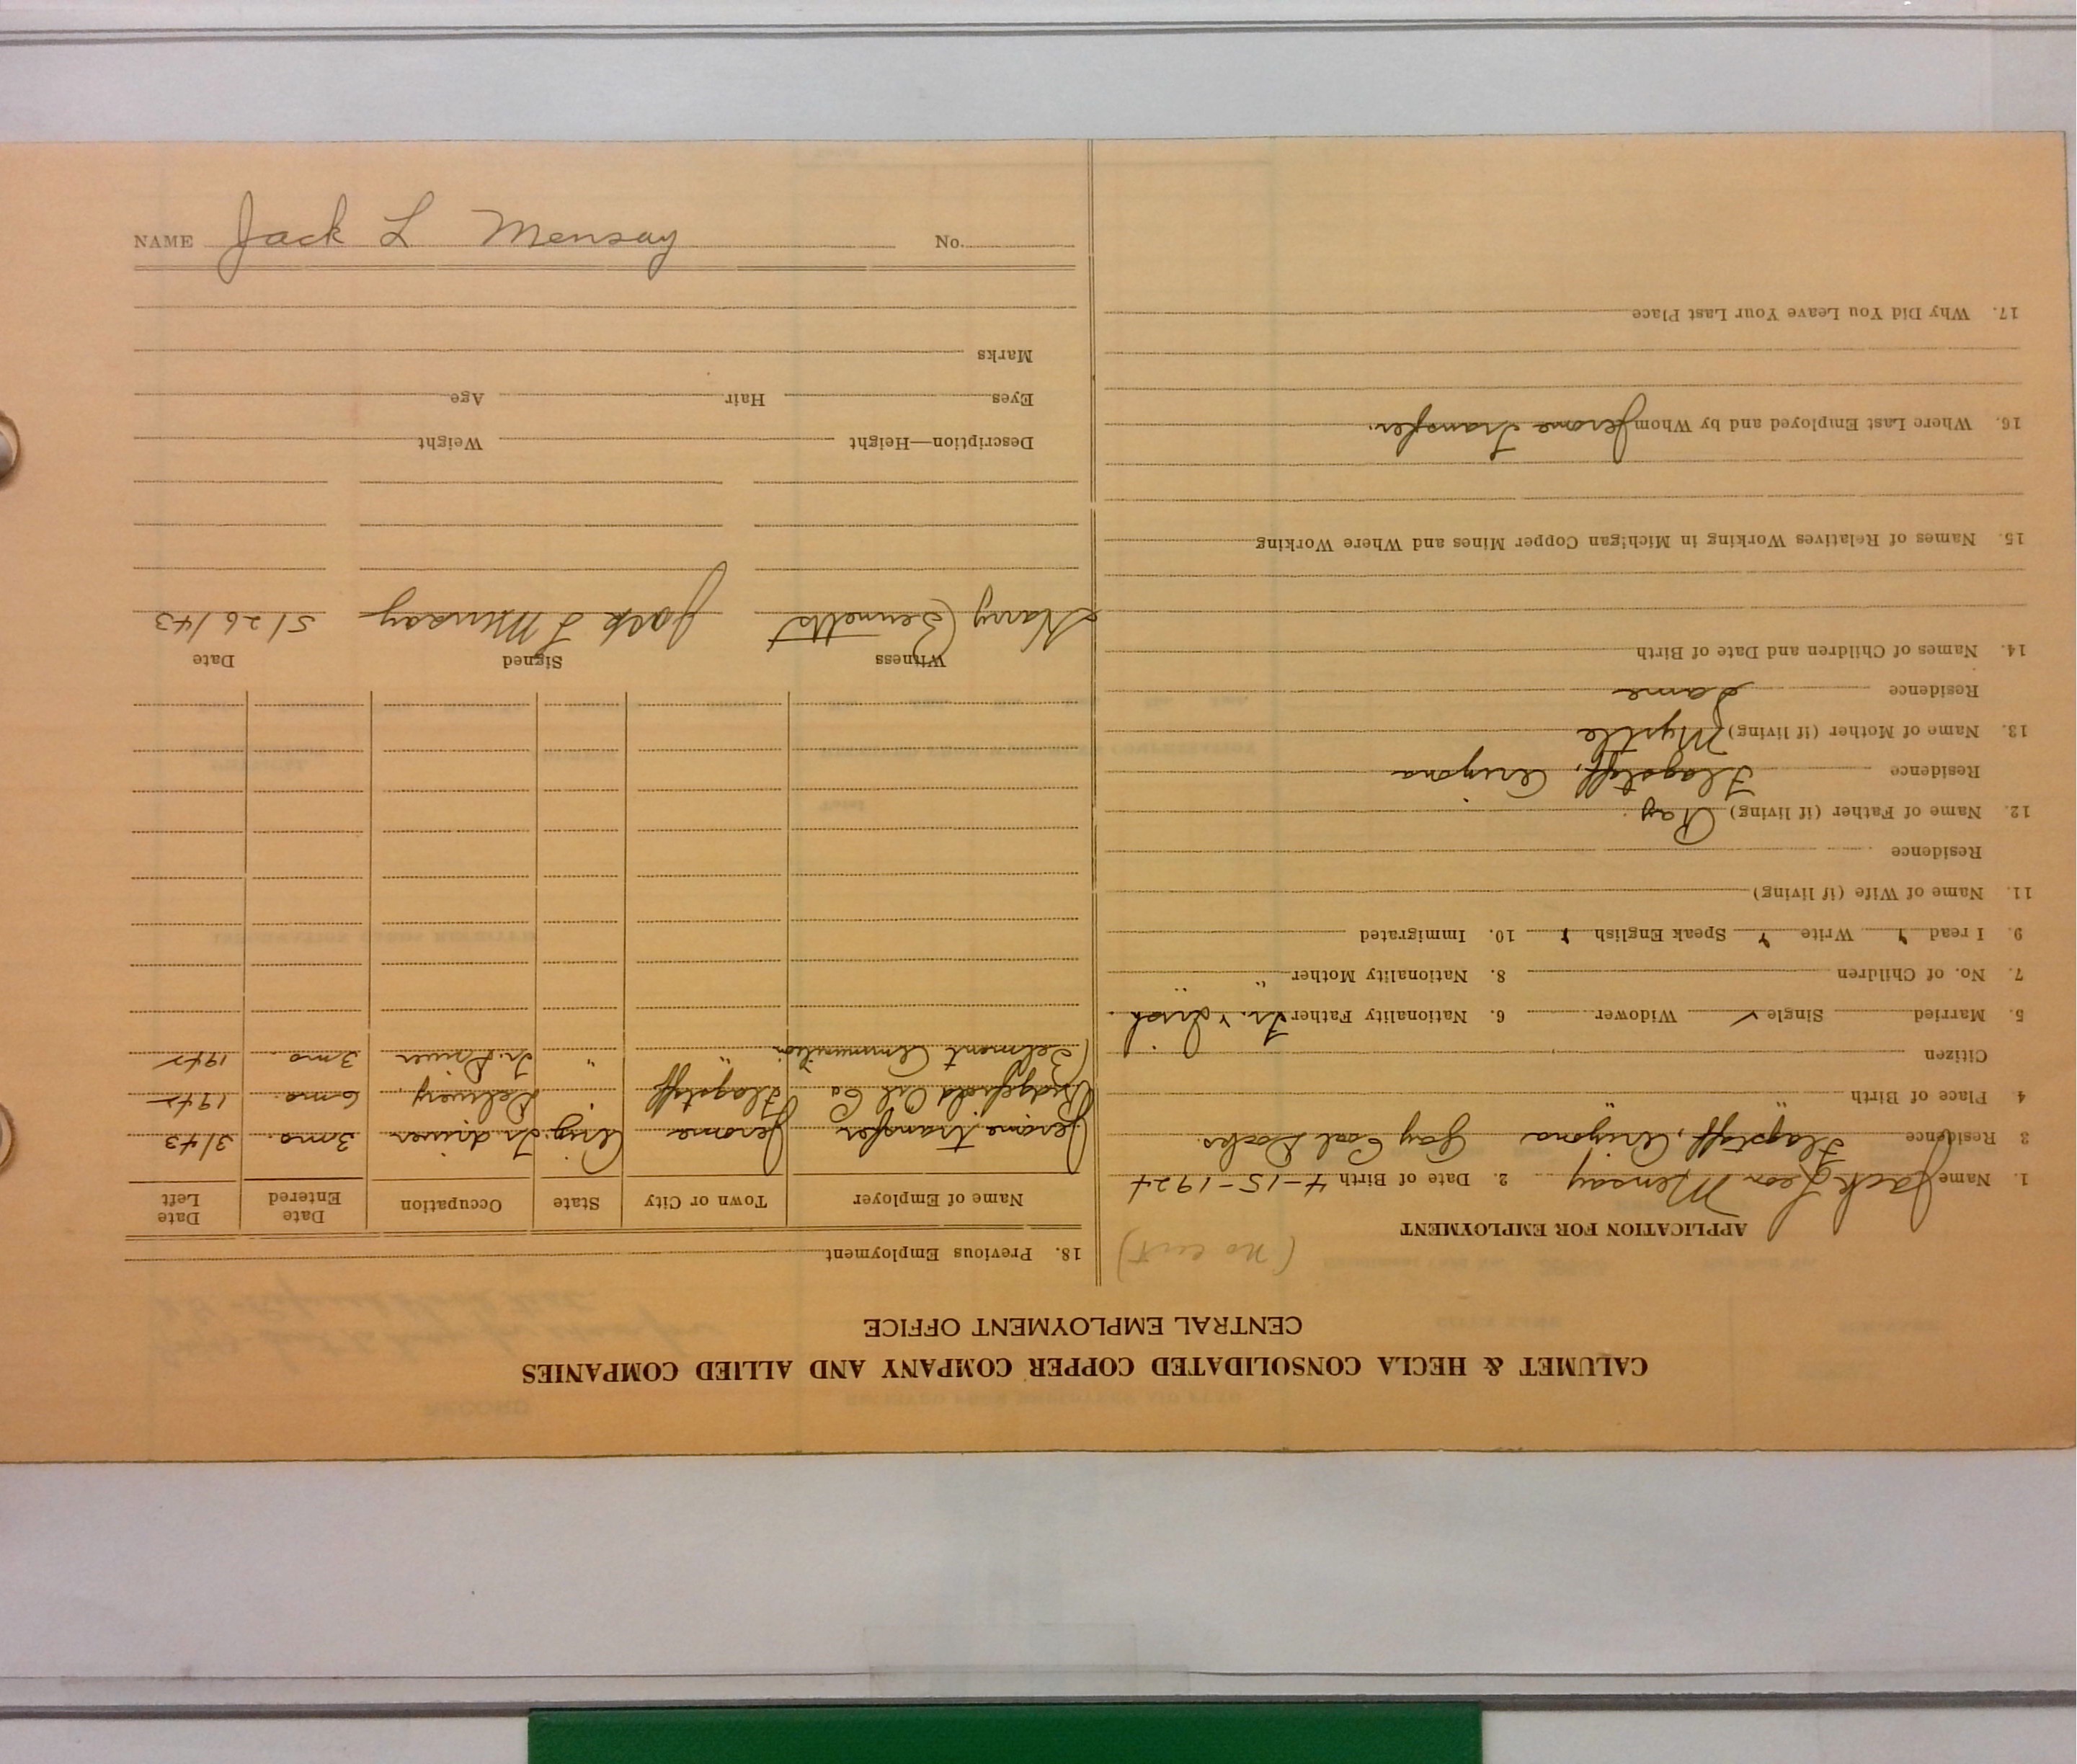 CALUMET & HECLA CONSOLIDATED COPPER COMPANY AND ALLIED COMPANIES
CENTRAL EMPLOYMENT OFFICE
APPLICATION FOR EMPLOYMENT
1. Name Jack Leon Mensay 2. Date of Birth 4-15-1924
3 Residence Flagstaff, Arizona Gay Coal Docks.
4 Place of Birth " "
Citizen
5. Married Single ✓ Widower 6. Nationality Father Fr. & Irish
7. No. of Children 8. Nationality Mother " "
9. I read Y Write Y Speak English Y 10. Immigrated
11. Name of Wife (if living)
Residence
12. Name of Father (if living) Ray.
Residence Flagstaff, Arizona
13. Name of Mother (if living) Myrtle
Residence Same
14. Names of Children and Date of Birth
15. Names of Relatives Working in Michigan Copper Mines and Where Working
16. Where Last Employed and by Whom Jerome Transfer.
17. Why Did You Leave Your Last Place
(no cert)
18. Previous Employment
Name of Employer Town or City State Occupation Date Entered Date Left
Jerome transfer Jerome Ariz. Tr. driver 3 mo. 3/43
Oil Co Flagstaff " Delivery. 6 mo. 1942
" " Tr. Driver 3 mo. 1942
Witness Signed Date
Harry Bennetts Jack L Mensay 5/26/43
Description—Height Weight
Eyes Hair Age
Marks
NAME Jack L Mensay No.